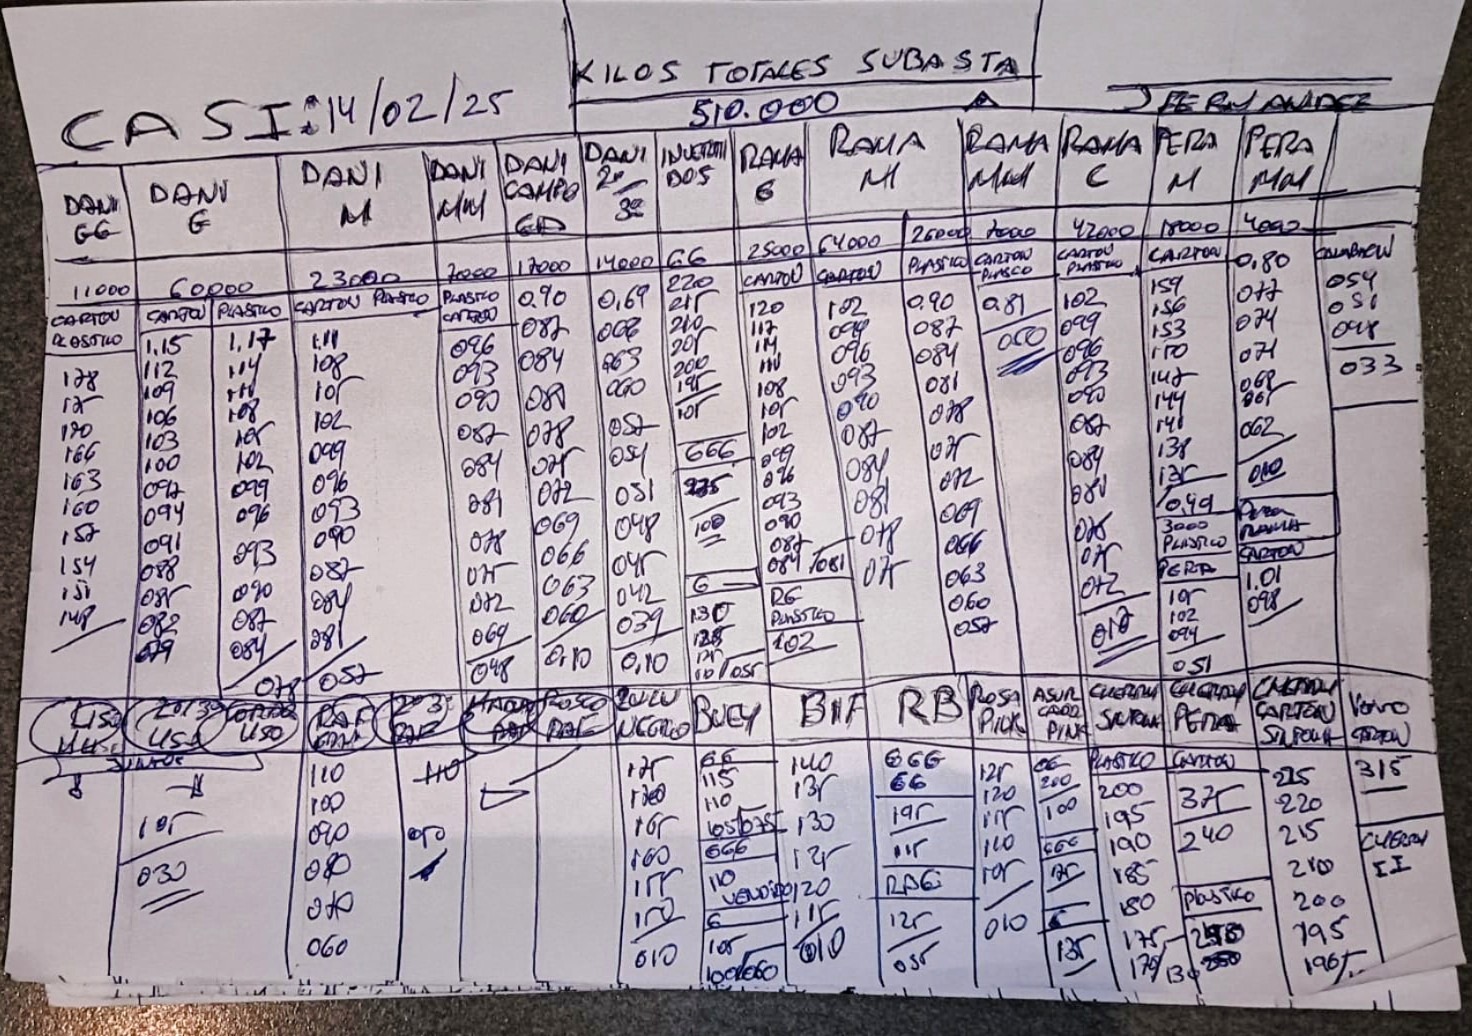 KILOS TOTALES SUBASTA
CASI: 14/02/25
510.000
J FERNANDEZ
DANI GG
DANI G
DANI M
DANI MM
DANI CAMPO
DANI 2ª 3ª
INVERTIDOS
RAMA G
RAMA M
RAMA MM
RAMA C
PERA M
PERA MM
11000 60000 23000 7000 17000 14000 GG 25000 64000 26000 42000 18000 4000
CARTON PLASTICO
178
175
170
166
163
160
157
154
151
148
CARTON
1,15
112
109
106
103
100
097
094
091
088
085
082
079
PLASTICO
1,17
114
111
108
105
102
099
096
093
090
087
084
078
CARTON PLASTICO
1,11
108
105
102
099
096
093
090
087
084
081
057
PLASTICO CARTON
096
093
090
087
084
081
078
075
072
069
048
0,90
087
084
081
078
075
072
069
066
063
060
0,10
0,69
066
063
060
057
054
051
048
045
042
039
0,10
220
215
210
205
200
195
105
GGG
100
G
130
125
CARTON
120
117
114
111
108
105
102
099
096
093
090
087
084/081
RG PLASTICO
102
CARTON
102
099
096
093
090
087
084
081
078
075
PLASTICO
0,90
087
084
081
078
075
072
069
066
063
060
057
CARTON PLASTICO
0,81
CARTON PLASTICO
102
099
096
093
090
087
084
081
075
072
CARTON
159
156
153
150
147
144
141
138
135
0,49
3000 PLASTICO
PERA
105
102
094
051
0,80
077
074
071
068
065
062
010
PERA RAMA
CARTON
1.01
098
054
051
048
033
LISO
2ª 3ª LISO
CORTO LISO
RAF
2ª 3ª RAF
RAF
ROSCO RAF
ZULU NEGRO
BUEY
BHF
RB
ROSA PINK
ASUR CADO PINK
CHERRY SIN RAMA
CHERRY PERA
CHERRY CARTON SIN RAMA
CARTON
JUNTOS
105
030
110
100
090
080
070
060
110
050
175
170
165
160
155
150
010
GG
115
110
105/075
GGG
110
VENDIDO
G
105
100/060
140
135
130
125
120
115
010
GGG
GG
195
115
RBG
125
055
125
120
115
110
105
010
GG
200
100
GGG
175
G
135
PLASTICO
200
195
190
185
180
175
170/130
CARTON
375
240
PLASTICO
225
220
215
210
200
195
190
315
CHERRY II